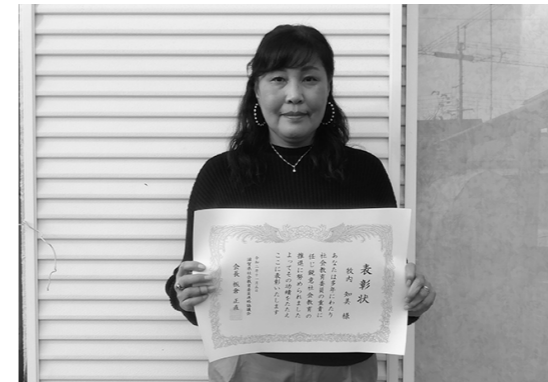 表彰状
牧内 知美 様
あなたは多年にわたり
社会教育委員の重責に
任じ鋭意社会教育の
推進に努められました
よってその功績をたたえ
ここに表彰いたします
会長